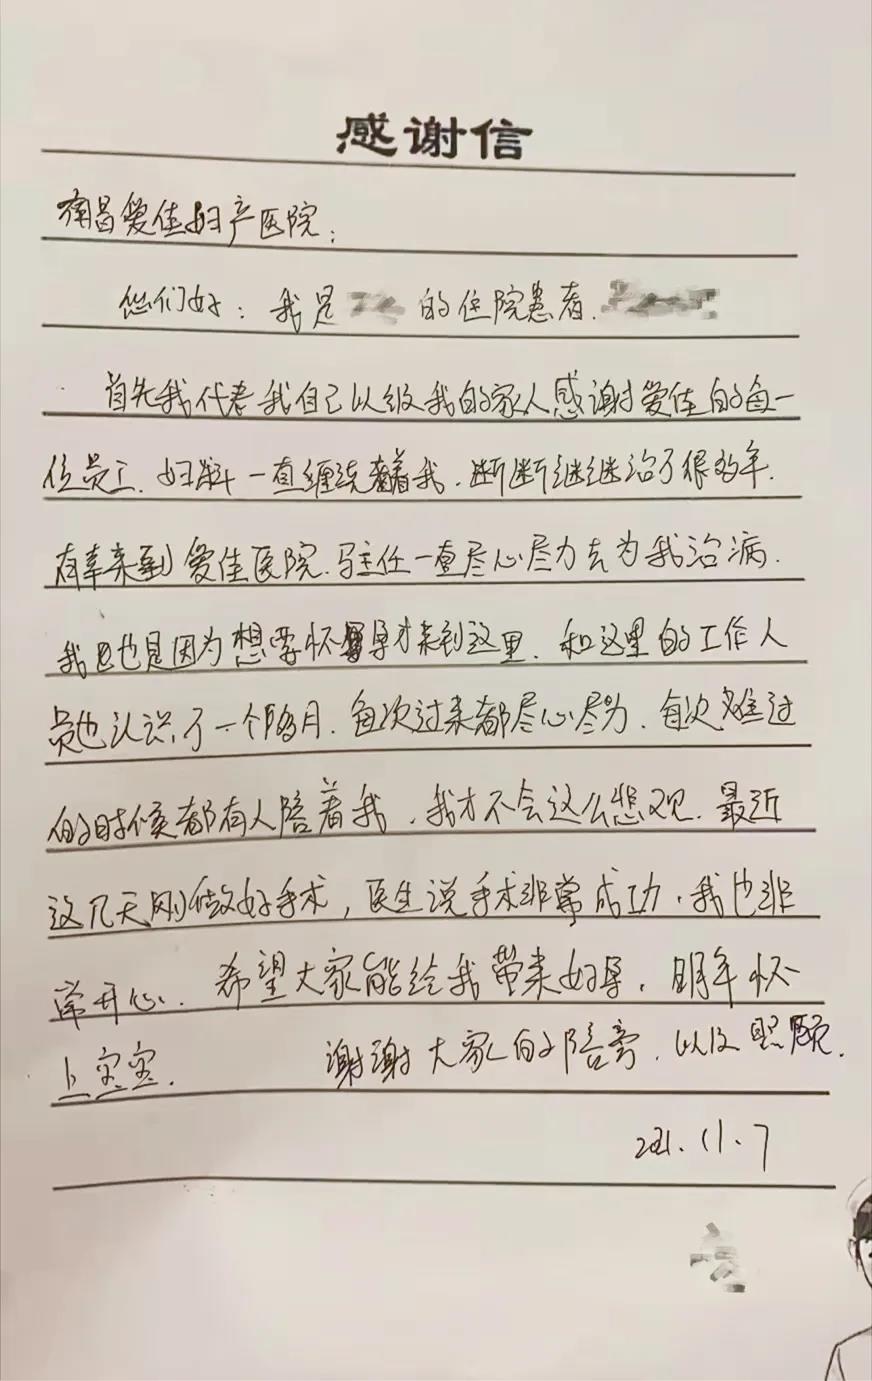 感谢信
南昌爱佳妇产医院:
您们好:我是 的住院患者.
首先我代表我自己以级我的家人感谢爱佳的每一
位员工.妇科一直缠绕着我.断断继继治了很多年.
有幸来到爱佳医院.马主任一直尽心尽力去为我治病.
我也是因为想要怀孕才来到这里.和这里的工作人
员也认识了一个多月.每次过来都尽心尽力.每次难过
的时候都有人陪着我.我才不会这么悲观.最近
这几天刚做好手术,医生说手术非常成功.我也非
常开心.希望大家能给我带来好孕.明年怀
上宝宝. 谢谢大家的陪旁.以及照顾.
2021.11.7